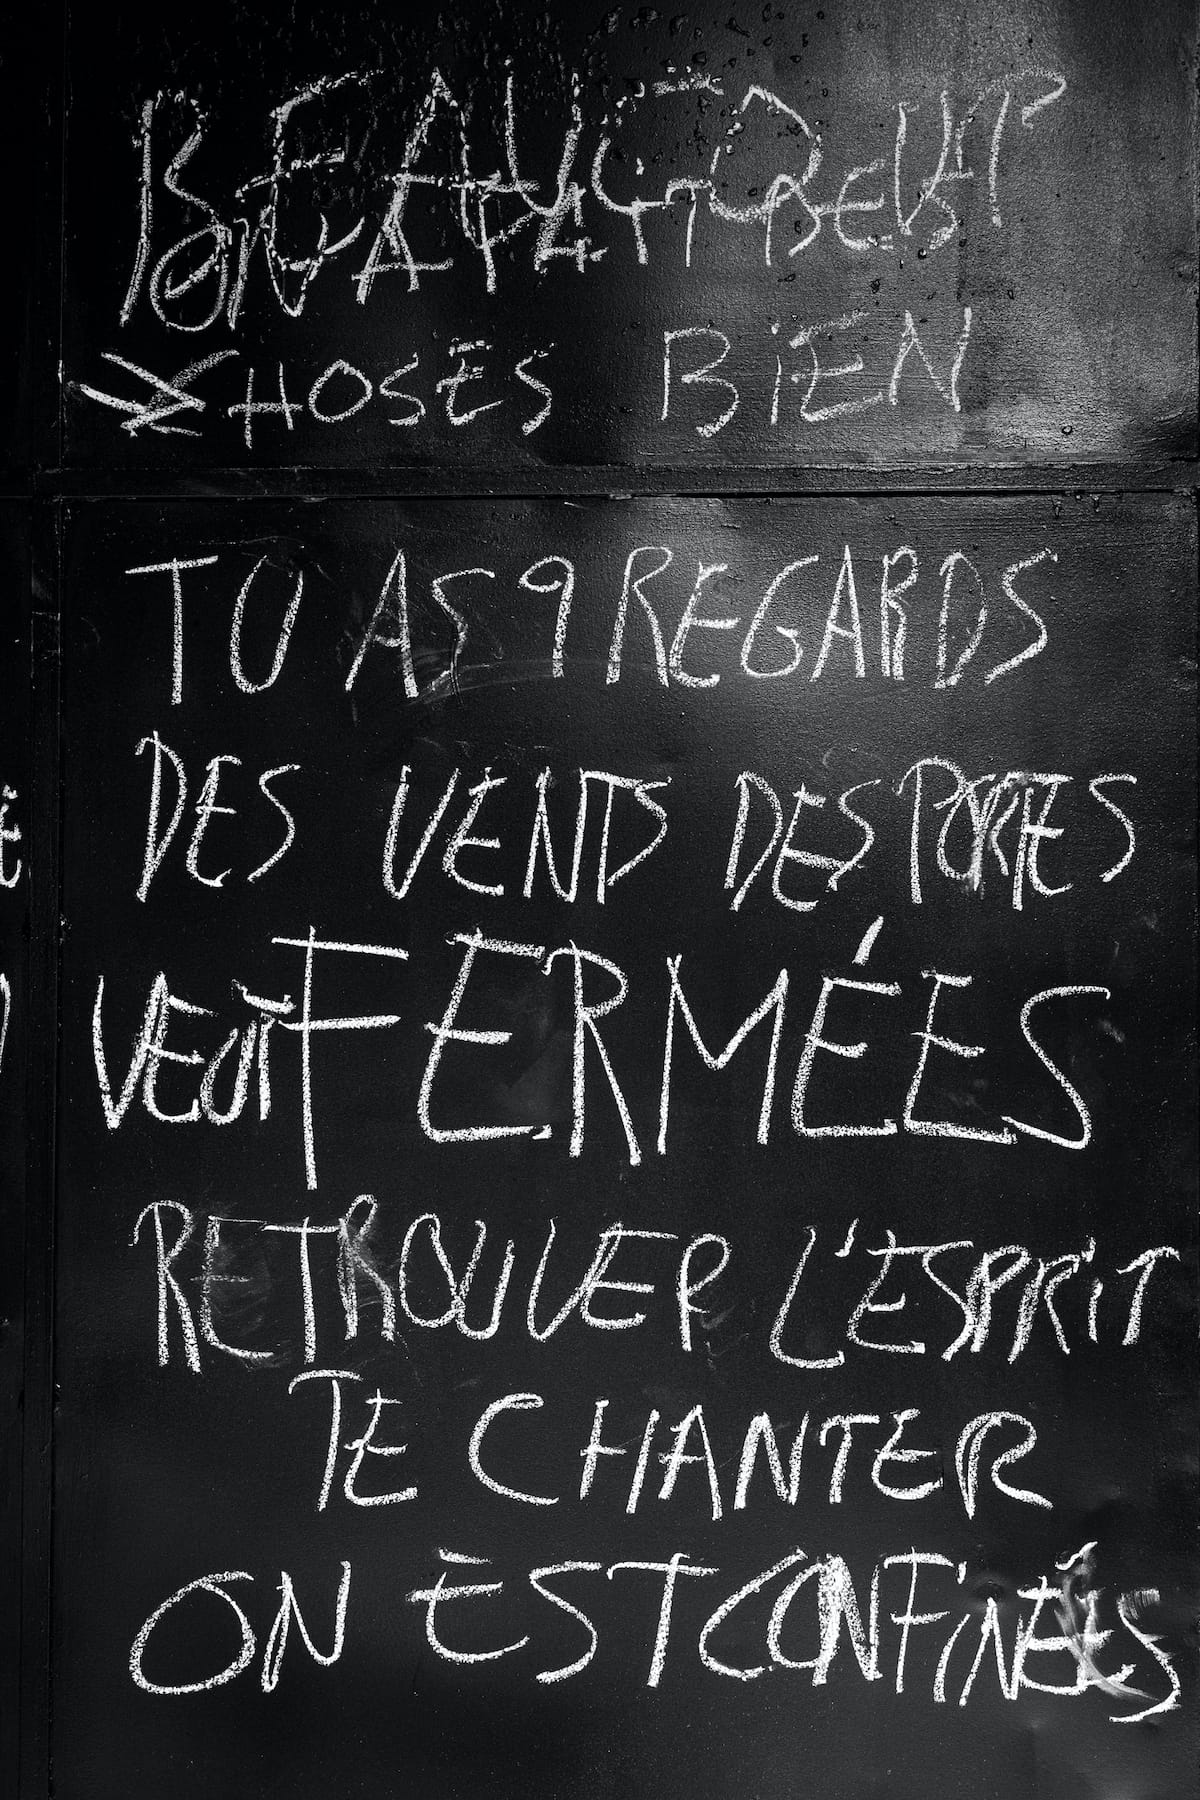 HOSES BIEN
TU AS 9 REGARDS
DES VENTS DES PORTES
VEUT FERMÉES
RETROUVER L'ESPRIT
TE CHANTER
ON EST CONFINÉES